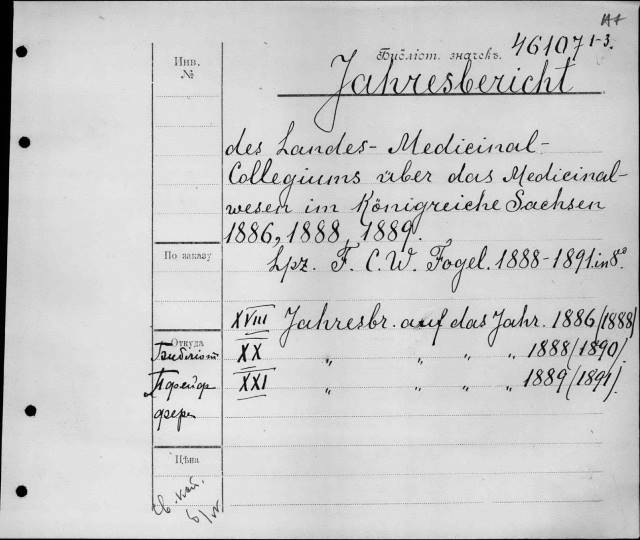 Инв.
№
Библіот. значекъ.
46107 1-3.
Jahresbericht
des Landes-Medicinal-
Collegiums über das Medicinal-
wesen im Königreiche Sachsen
1886, 1888, 1889.
По заказу
Lpz. F. C. W. Fogel. 1888-1891. in 8°.
XVIII Jahresbr. auf das Jahr. 1886/(1888)
Откуда
Библіот. XX „ „ „ „ 1888/(1890).
Пфейф XXI „ „ „ „ 1889/(1891).
фера
Цѣна